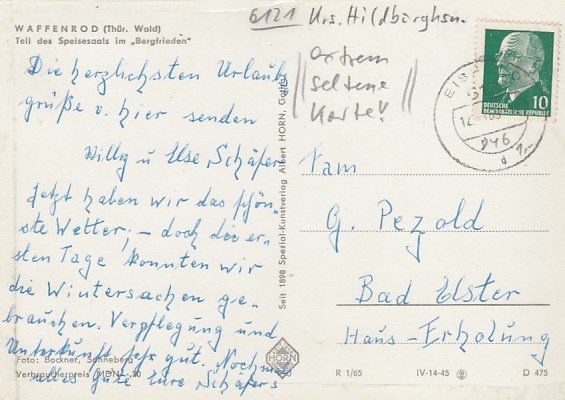 WAFFENROD (Thür. Wald)
Teil des Speisesaals im „Bergfrieden"
6121 Krs. Hildburghsn.
extrem
seltene
Karte!
Die herzlichsten Urlaubs
grüße v. hier senden
Willy u Else Schäfer
Jetzt haben wir das schön-
ste Wetter, – doch die er-
sten Tage konnten wir
die Wintersachen ge-
brauchen. Verpflegung und
Unterkunft sehr gut. Nochmals
alles Gute Eure Schäfers
Foto: Bockner, Sonneberg
Verbraucherpreis MDN –,20
Seit 1898 Spezial-Kunstverlag Albert HORN, Gotha
HORN
DEUTSCHE
DEMOKRATISCHE REPUBLIK
10
EIS
Fam
G. Pezold
Bad Elster
Haus-Erholung
R 1/65 IV-14-45 D 475